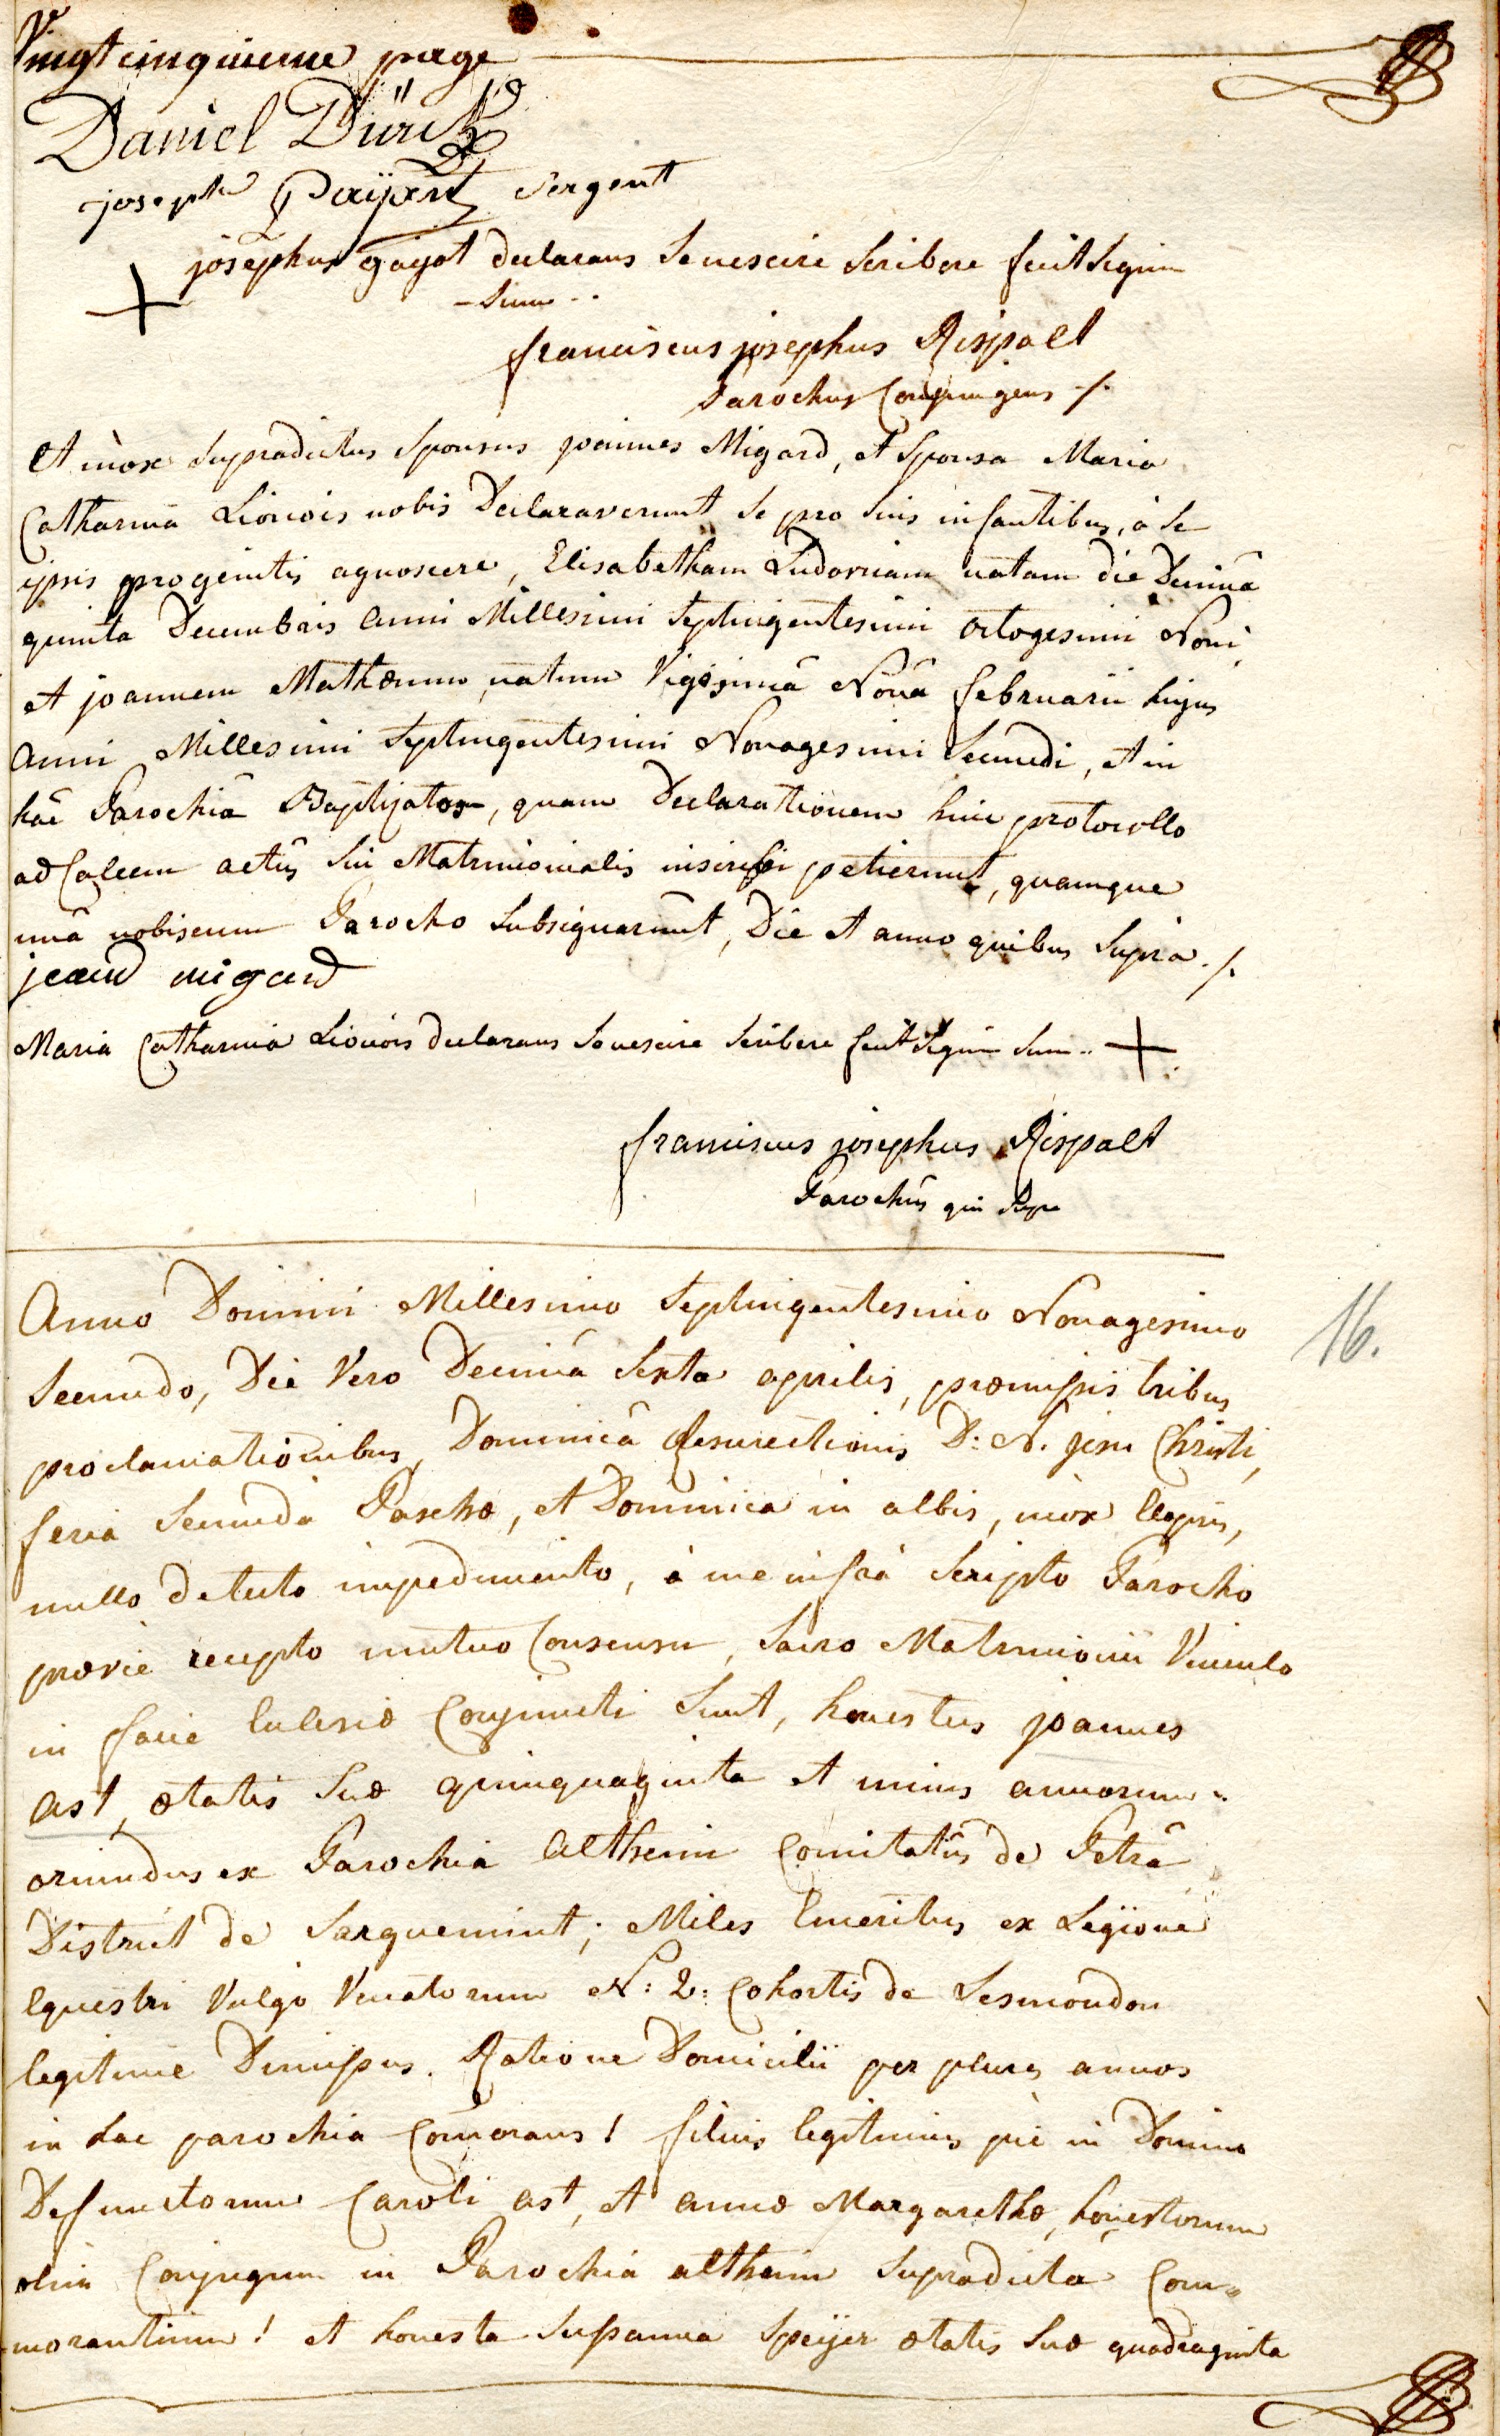 Vingt cinquieme page
Daniel Dürck
joseph Paÿant sergent
josephus gayot declarans se nescire scribere fecit signum
- suum - .
franciscus josephus Rispalt
Parochus Conjungens ./.
Et mòx supradictus sponsus joannes Migard, et sponsa Maria
Catharina Lionois nobis Declaraverunt se pro suis infantibus, à se
ipsis progenitis agnoscere, Elisabetham Ludovicam natam die Decimâ
quinta Decembris anni Millesimi septingentesimi octogesimi Noni,
et joannem Mathæum, natum Vigesimâ Nonâ februarii hujus
anni Millesimi septingentesimi Nonagesimi secundi, et in
hâc Parochiâ Baptizatos, quam Declarationem huic protocollo
ad Calcem actûs sui Matrimonialis inscribi petierunt, quamque
unâ nobiscum Parocho subsignarunt, Die et anno quibus supra ./.
jean migard
Maria Catharina Lionois declarans se nescire scribere fecit signum suum ..
franciscus josephus Rispalt
Parochus qui supra
Anno Domini Millesimo septingentesimo Nonagesimo
secundo, Die Vero Decimâ sexta aprilis, præmissis tribus
proclamationibus, Dominicâ Resurrectionis D: N. jesu Christi,
feria secunda Paschæ, et Dominica in albis, mox elapsis,
nullo detecto impedimento, à me infra scripto Parocho
prævie recepto mutuo Consensu, sacro Matrimonii Vinculo
in facie Ecclesiæ Conjuncti sunt, honestus joannes
ast, ætatis suæ quinquaginta et unius annorum ..
oriundus ex Parochia altheim Comitatûs de Petrâ
District de Sarguemint; Miles Emeritus ex Legïone
Equestri Vulgo Venatorum N: 2: Cohortis de Lesmondon
legitime Dimissus. Ratione Domicilii per plures annos
in hac parochia Com̄orans! filius legitimus pie in Domino
Defunctorum Caroli ast, et annæ Margarethæ, honestorum
olim Conjugum in Parochia altheim supradicta Com=
morantium! et honesta sussanna Speÿer ætatis suæ quadraginta
16.